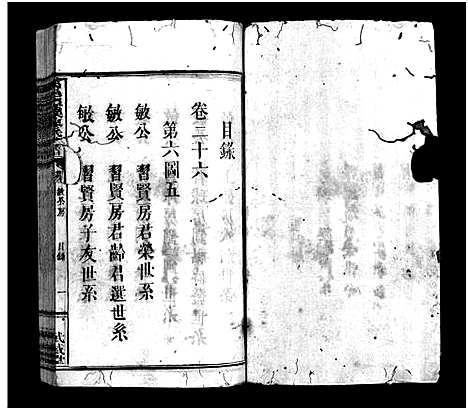 目錄
卷三十六
第六圖五
敏公 習賢房君榮世系
敏公 習賢房君齡君選世系
敏公 習賢房子友世系
敏公房 目錄 一